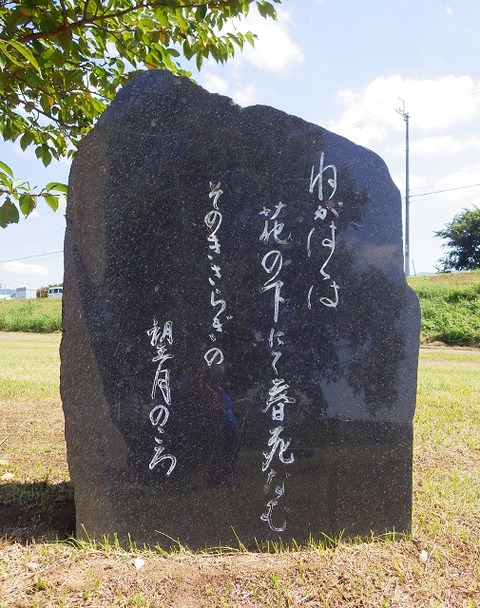 ねがはくは
花の下にて春死なむ
そのきさらぎの
望月のころ